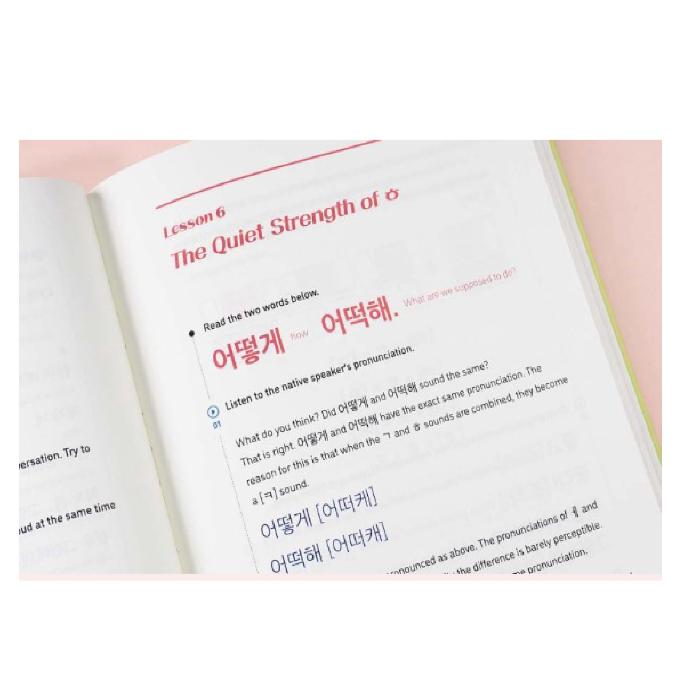 ersation. Try to
ud at the same time
Lesson 6
The Quiet Strength of ㅎ
Read the two words below.
어떻게 how 어떡해. What are we supposed to do?
Listen to the native speaker's pronunciation.
01
What do you think? Did 어떻게 and 어떡해 sound the same?
That is right. 어떻게 and 어떡해 have the exact same pronunciation. The
reason for this is that when the ㄱ and ㅎ sounds are combined, they become
a [ㅋ] sound.
어떻게 [어떠케]
어떡해 [어떠캐]
onounced as above. The pronunciations of ㅔ and
the difference is barely perceptible.
me pronunciation.